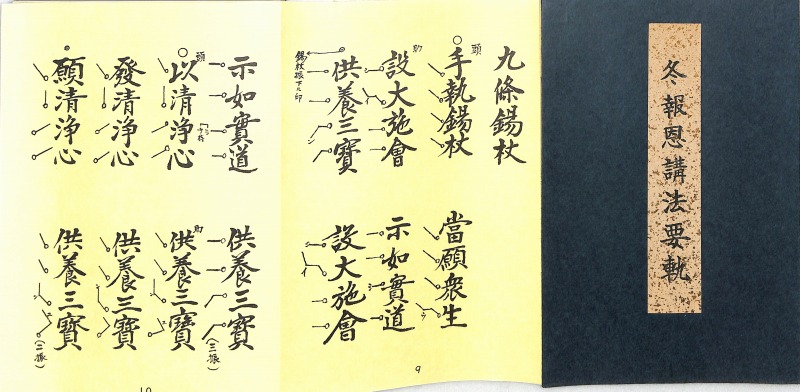 冬報恩講法要軌
九條錫杖
頭
手執錫杖 當願衆生
設大施會 示如實道
助
供養三寶 設大施會
錫杖振下ル印
9
示如實道 供養三寶
(三振)
頭
以清淨心 供養三寶
助
發清淨心 供養三寶
願清淨心 供養三寶
(二振)
10